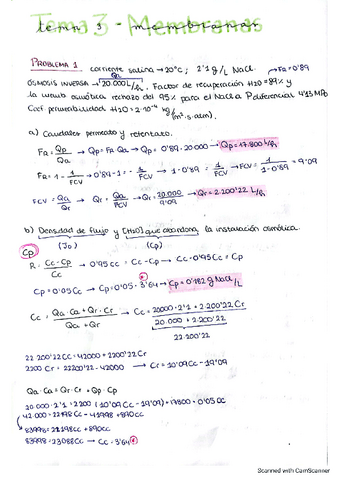 Tema 3 - Membranas
PROBLEMA 1 corriente salina → 20°C; 2'1 g/L NaCl. Fr=0'89
ÓSMOSIS INVERSA → 20.000 L/h. Factor de recuperación H2O = 89% y
la unidad osmótica rechaza del 95% para el NaCl. P diferencial 4'13 MPa
Coef. permeabilidad H2O = 2·10⁻⁴ kg/(m²·s·atm).
a) Caudales permeado y retentato.
FR = Qp/Qa → Qp = FR·Qa → Qp = 0'89·20.000 → Qp = 17.800 L/h
FR = 1 - 1/FCV → 0'89 - 1 = - 1/FCV → 1 - 0'89 = 1/FCV → FCV = 1/(1-0'89) = 9'09
FCV = Qa/Qr → Qr = Qa/FCV → Qr = 20.000/9'09 → Qr = 2.200'22 L/h
b) Densidad de flujo y [H2O] que abandona la instalación osmótica.
(Jo) (Cp)
Cp
R = (Cc - Cp)/Cc → 0'95 Cc = Cc - Cp → Cc - 0'95 Cc = Cp
Cp = 0'05 Cc → Cp = 0'05 · 3'64 → Cp = 0'182 g NaCl/L
Cc = (Qa·Ca + Qr·Cr)/(Qa + Qr) → Cc = (20000·2'1 + 2.200'22 Cr)/(20.000 + 2.200'22)
22.200'22
22 200'22 Cc = 42000 + 2200'22 Cr
2200 Cr = 22200'22 - 42000 → Cr = 10'09 Cc - 19'09
Qa·Ca = Qr·Cr + Qp·Cp
20.000·2'1 = 2200 (10'09 Cc - 19'09) + 17800·0'05 Cc
42.000 = 22198 Cc - 41998 + 890 Cc
83998 = 22198 Cc + 890 Cc
83998 = 23088 Cc → Cc = 3'64
Scanned with CamScanner